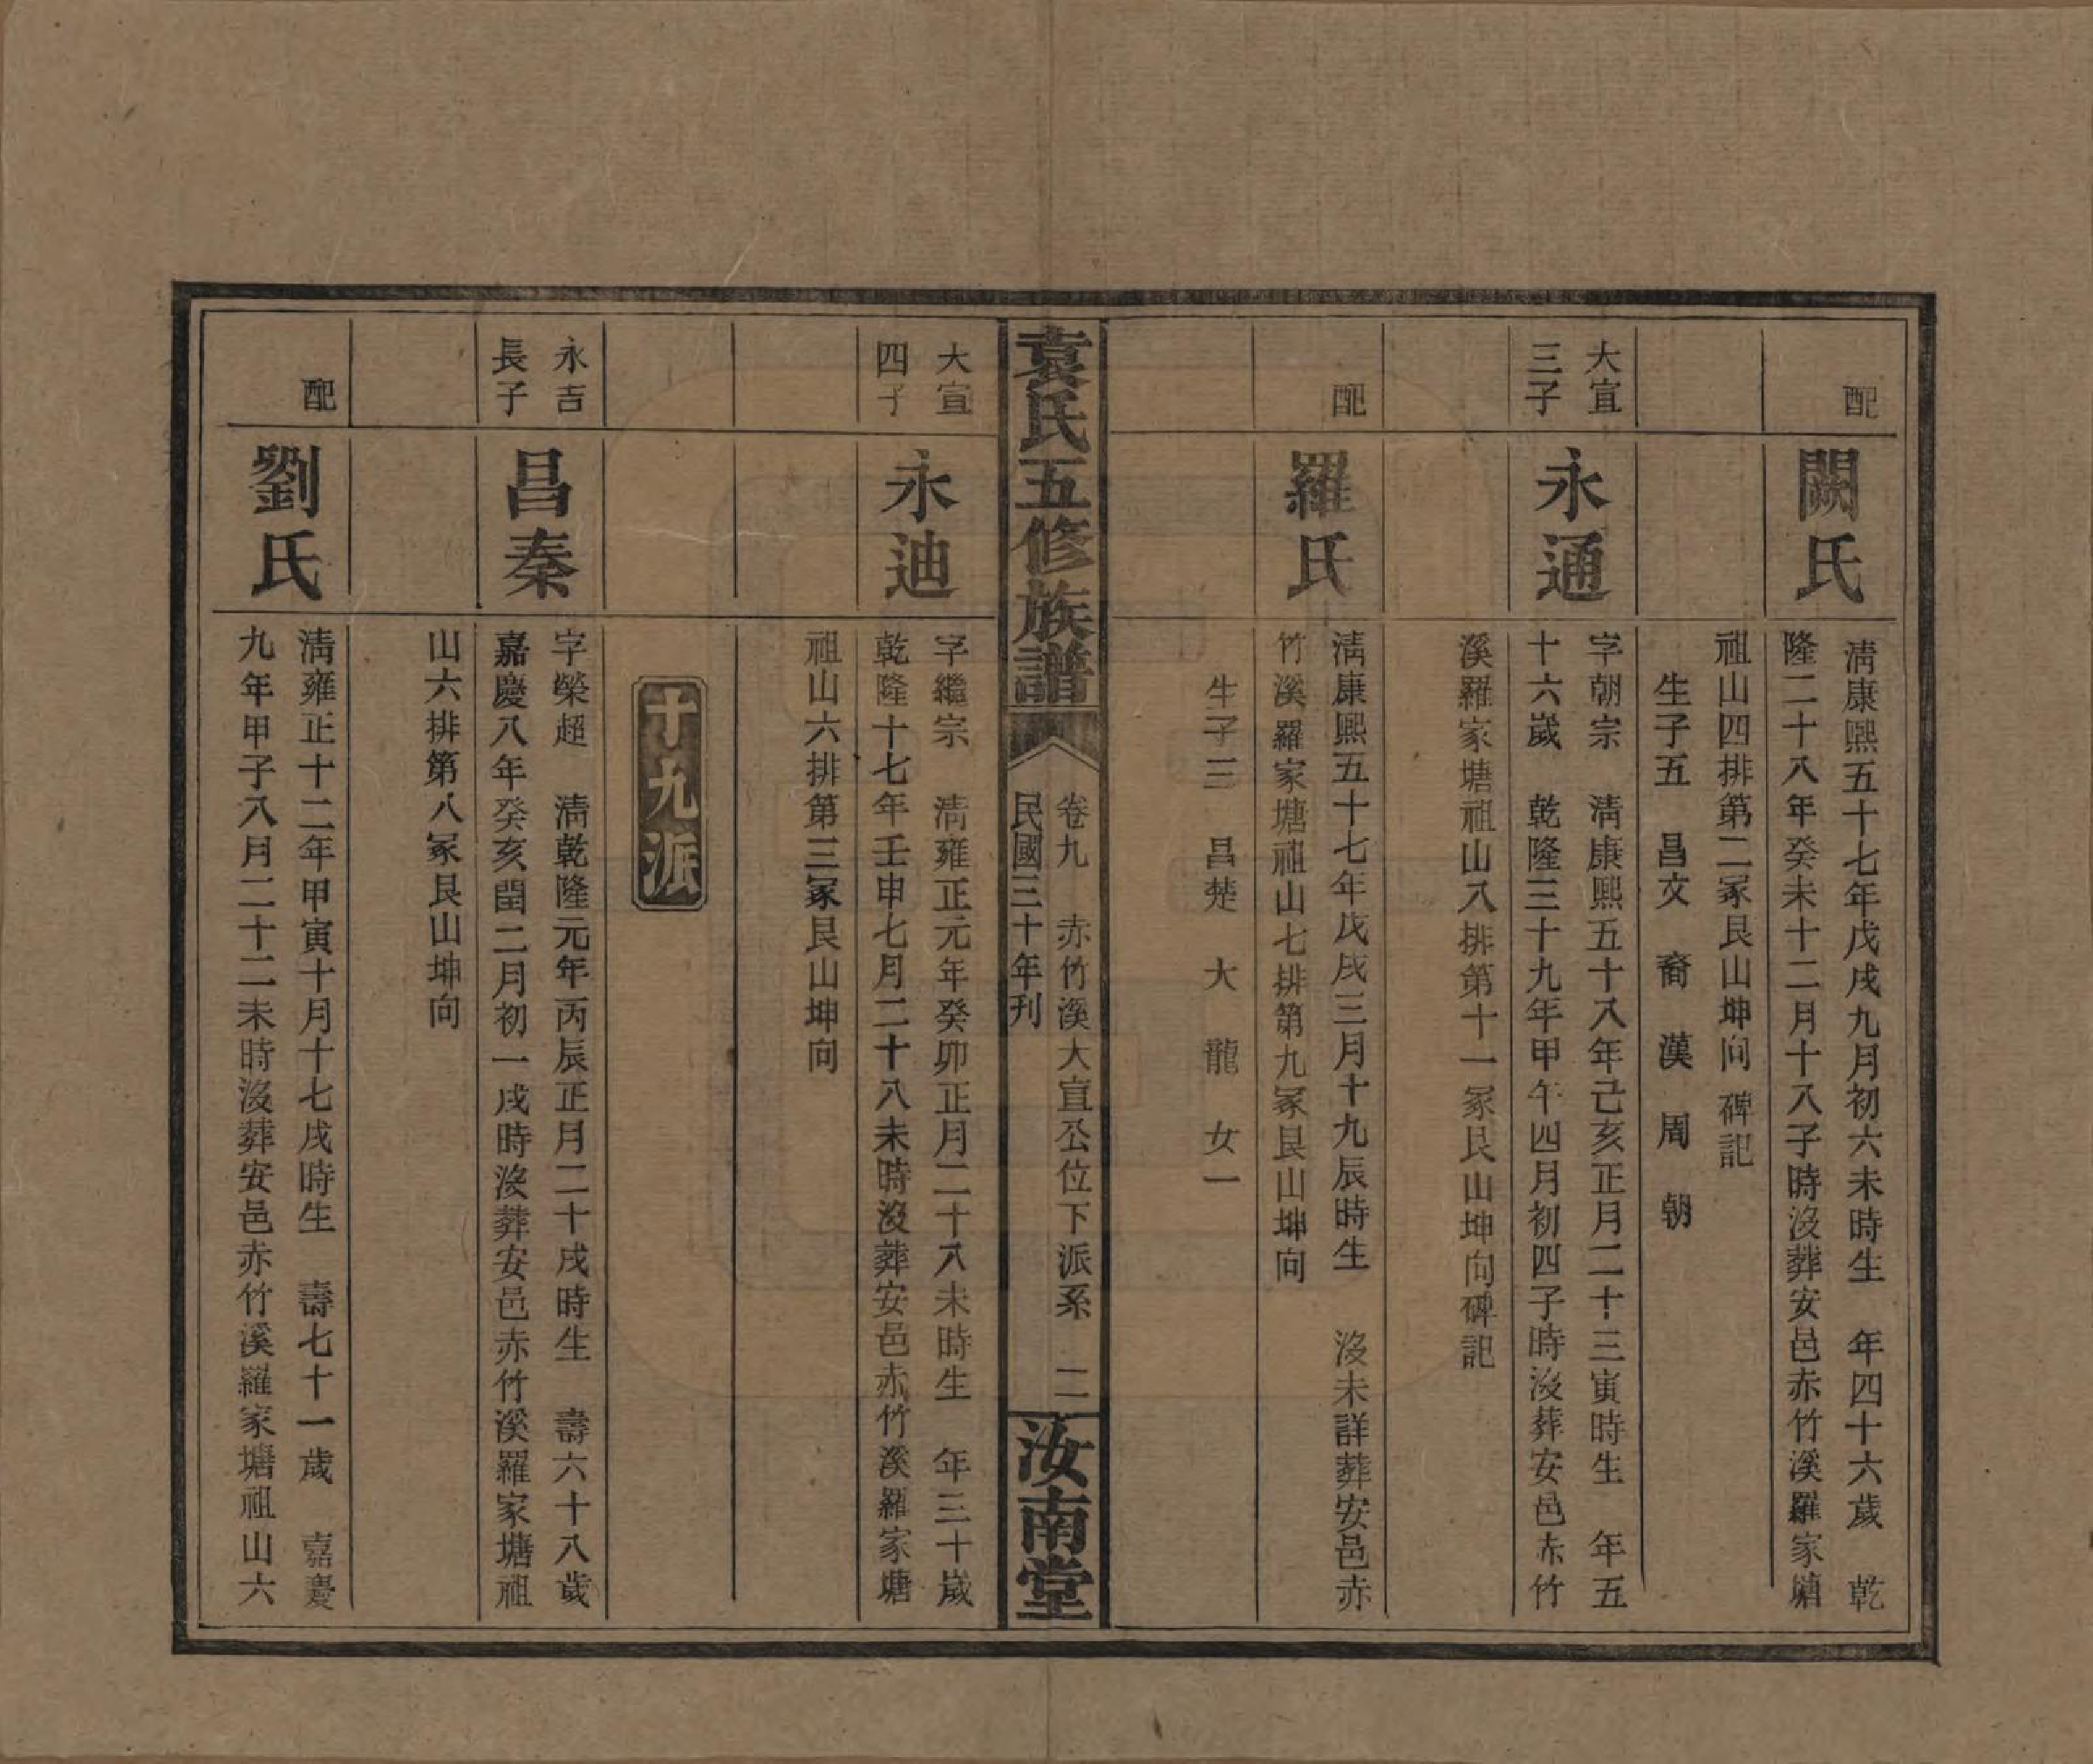 配
闕氏
淸康熙五十七年戊戌九月初六未時生　年四十六歲　乾
隆二十八年癸未十二月十八子時沒葬安邑赤竹溪羅家塘
祖山四排第二冢艮山坤向　碑記
生子五　昌文　裔　漢　周　朝
大宣
三子
永通
字朝宗　淸康熙五十八年己亥正月二十三寅時生　年五
十六歲　乾隆三十九年甲午四月初四子時沒葬安邑赤竹
溪羅家塘祖山八排第十一冢艮山坤向碑記
配
羅氏
淸康熙五十七年戊戌三月十九辰時生　沒未詳葬安邑赤
竹溪羅家塘祖山七排第九冢艮山坤向
生子三　昌楚　大　龍　女一
袁氏五修族譜
卷九　赤竹溪大宣公位下派系　二
民國三十年刊
汝南堂
大宣
四子
永迪
字繼宗　淸雍正元年癸卯正月二十八未時生　年三十歲
乾隆十七年壬申七月二十八未時沒葬安邑赤竹溪羅家塘
祖山六排第三冢艮山坤向
十九派
永吉
長子
昌秦
字榮超　淸乾隆元年丙辰正月二十戌時生　壽六十八歲
嘉慶八年癸亥閏二月初一戌時沒葬安邑赤竹溪羅家塘祖
山六排第八冢艮山坤向
配
劉氏
淸雍正十二年甲寅十月十七戌時生　壽七十一歲　嘉慶
九年甲子八月二十二未時沒葬安邑赤竹溪羅家塘祖山六